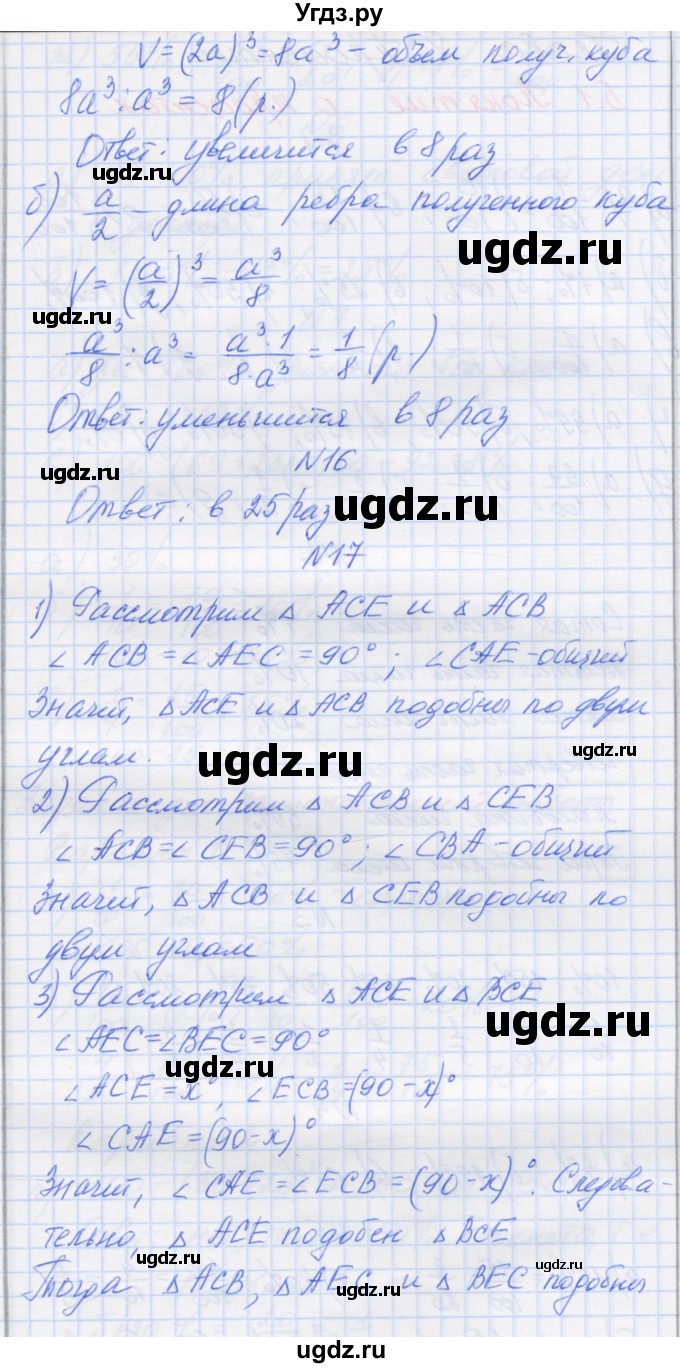 Угдз.ру
V=(2a)³=8a³ – объем получ. куба
8a³:a³ = 8(р.)
Ответ: увеличится в 8 раз
ugdz.ru
б) a/2 – длина ребра полученного куба
ugdz.ru
V = (a/2)³ = a³/8
ugdz.ru
a³/8 : a³ = a³·1/8·a³ = 1/8 (р.)
Ответ: уменьшится в 8 раз
N16
ugdz.ru
Ответ: в 25 раз
ugdz.ru
N17
1) Рассмотрим △ ACE и △ ACB
∠ ACB = ∠ AEC = 90°; ∠CAE – общий
Значит, △ ACE и △ ACB подобны по двум
углам.
ugdz.ru
ugdz.ru
2) Рассмотрим △ ACB и △ CEB
∠ ACB = ∠ CEB = 90°; ∠ CBA – общий
Значит, △ ACB и △ CEB подобны по
двум углам
3) Рассмотрим △ ACE и △ BCE
ugdz.ru
∠ AEC = ∠ BEC = 90°
ugdz.ru
∠ ACE = x°, ∠ ECB = (90 – x)°
∠ CAE = (90 – x)°
Значит, ∠ CAE = ∠ ECB = (90 – x)°. Следова-
тельно, △ ACE подобен △ BCE
ugdz.ru
ugdz.ru
Тогда △ ACB, △ AEC и △ BEC подобны
ugdz.ru
ugdz.ru